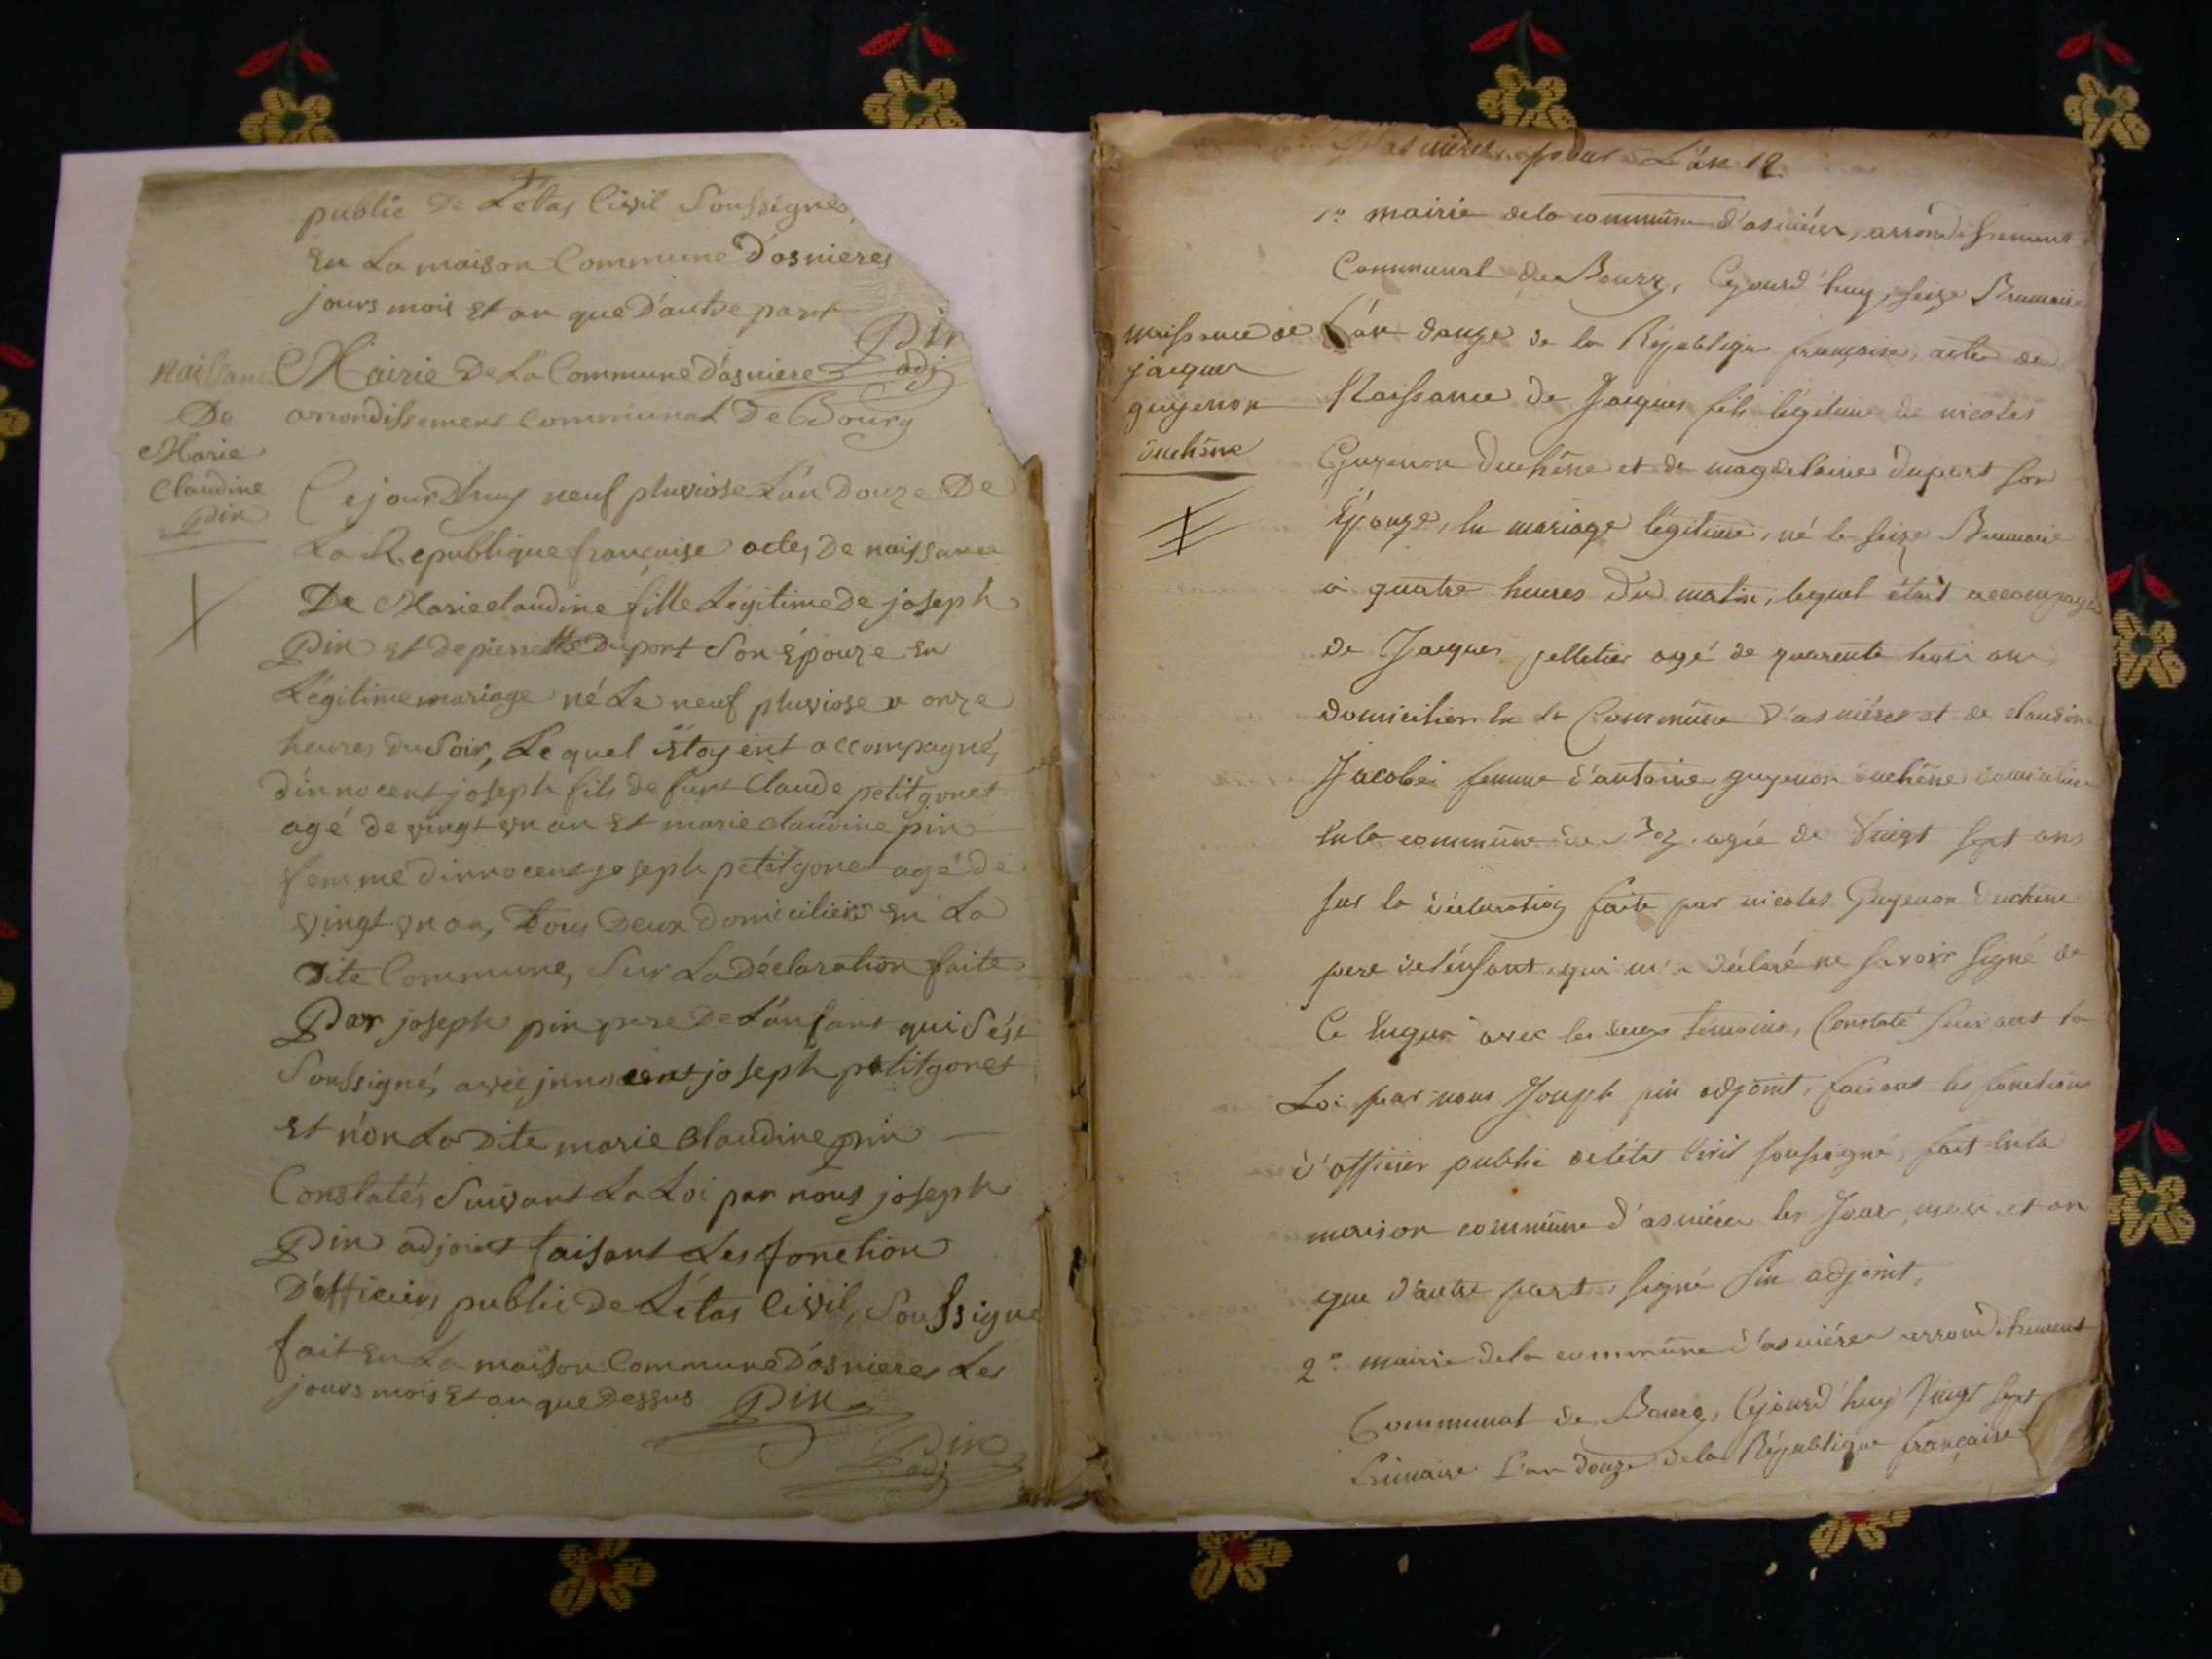 publie De L'etas Civil Soussignes
En La maison Commune D'asnieres
jours mois Et an que D'autre part
Pin
adj
Naissance
De
Marie
Claudine
Pin
Mairie De La Commune D'asniere
arrondissement Communal De Bourg
Cejourd'huy neuf pluviose L'an Douze De
La Republique française actes De naissance
De Marie claudine fille Légitime de joseph
Pin Et de pierrette Duport Son Épouze En
Légitime mariage né Le neuf pluviose a onze
heures du Soir, Lequel Etoyent accompagné,
d'innocent joseph fils de funt Claude petitgonet
agé de vingt vn an Et marie claudine pin
femme d'innocent joseph petitgonet agé de
vingt vn an, Tous Deux Domiciliers En La
Dite Commune, Sur La Déclaration faite
Par joseph pin pere De L'anfant qui S'ést
Soussigné, avec jnnocent joseph petitgonet
Et n'on La Dite marie Claudine pin
Constatés Suivant La Loi par nous joseph
Pin adjoint faisant Les fonction
D'officiers publie De L'étas Civil, Soussigne
fait En La maison Commune D'asnieres Les
jours mois Et an que Dessus Pin
Pin
adj
D'asnières pour L'an 12
1er mairie dela commune d'asnières, arrondissement
Communal de Bourg, Cejourd'huy, seize Brumaire
naissance de
jacques
guyenon
duchêne
L'an douze de la République française, actes de
Naissance de Jacques fils légitime de nicolas
Guyenon Duchêne et de magdelaine duport son
Épouze, En mariage légitime, né le seize Brumaire
à quatre heures du matin, lequel était accompagné
de Jacques pelletier agé de quarente trois ans
domicilier En la Commune d'asnières et de claudine
Jacobé femme d'antoine guyenon duchêne domiciliée
En la commune de agée de Vingt sept ans
sur la déclaration faite par nicolas Guyenon Duchêne
pere de l'énfant, qui m'a déclaré ne savoir signé de
Ce Enquis avec les deux témoins, Constaté suivant la
Loi par nous Joseph pin adjoint, faisant les fonctions
d'officier public de l'état Civil soussigné, fait En la
maison commune d'asnières les Jour, mois et an
que d'autre part, signé Pin adjoint,
2e mairie dela commune d'asnières arrondissement
Communal de Bourg, Cejourd'huy Vingt sept
frimaire L'an douze de la République française